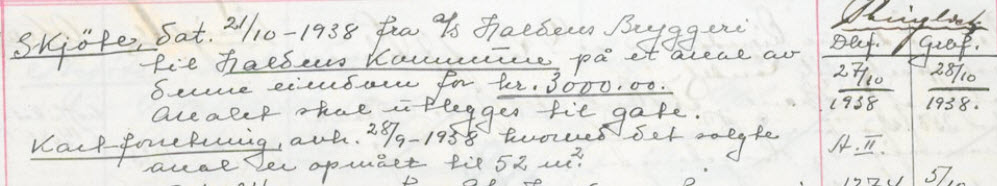 Tinglyst
Skjöte, dat. 21/10-1938 fra A/S Haldens Bryggeri
Dbf. Grbf.
til Haldens Kommune på et areal av
27/10 28/10
denne eiendom for kr. 3000.00.
1938 1938.
Arealet skal utlegges til gate.
Kartforretning, avh. 28/9-1938 hvorved det solgte
A. II.
areal er opmålt til 52 m².
5/10